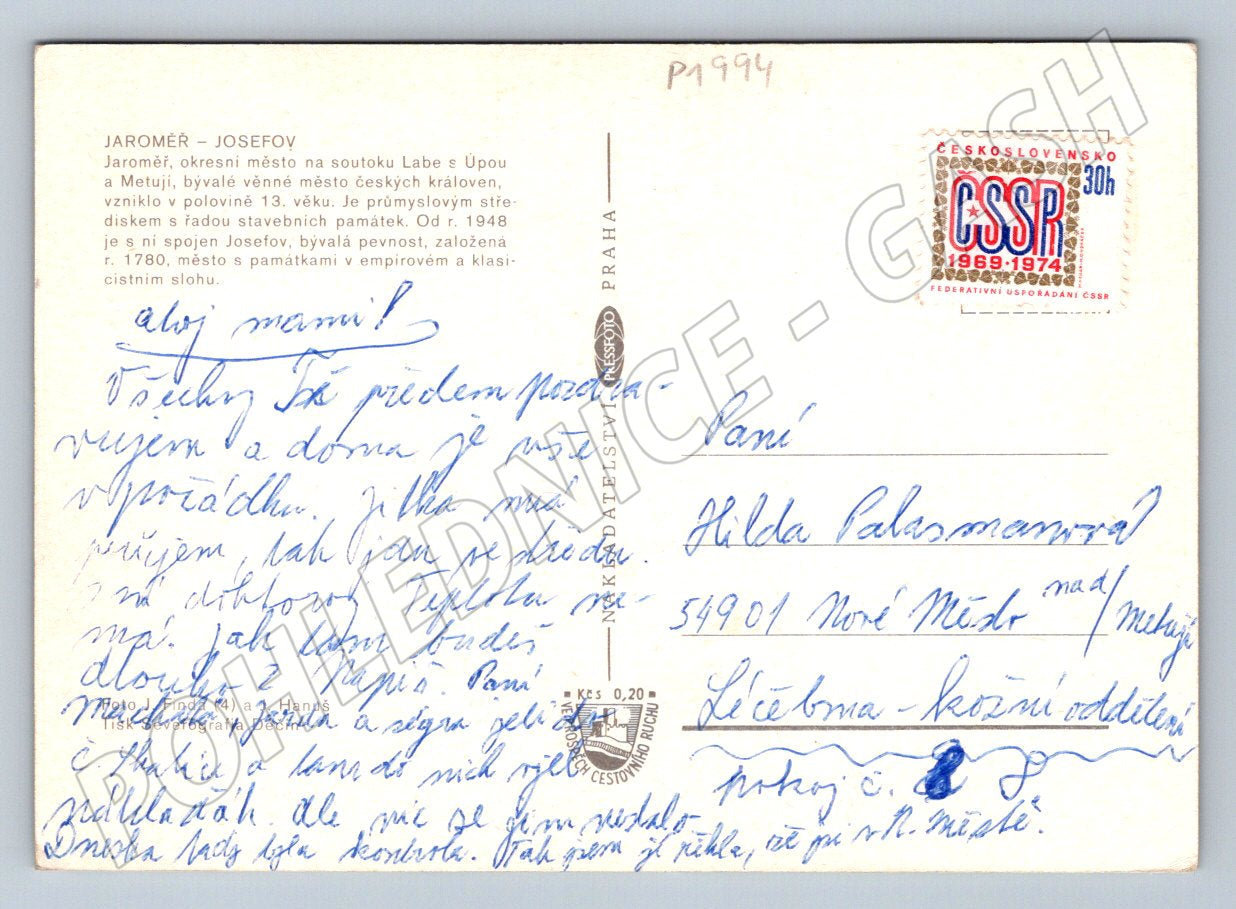 P1994
JAROMĚŘ – JOSEFOV
Jaroměř, okresní město na soutoku Labe s Úpou
a Metují, bývalé věnné město českých královen,
vzniklo v polovině 13. věku. Je průmyslovým stře-
diskem s řadou stavebních památek. Od r. 1948
je s ní spojen Josefov, bývalá pevnost, založená
r. 1780, město s památkami v empírovém a klasi-
cistním slohu.
ahoj mami!
Všechny Tě předem pozdra-
vujem a doma je vše
v pořádku. Jitka má
průjem, tak jdu ve středu
s ní doktorovi Teplotu ne-
má. Jak tam budeš
dlouho? Napiš. Paní
Jarda a ségra jeli do
č. Skalice a tam do nich vjel
náklaďák. Ale nic se jim nestalo
Dneska tady byla kontrola. Tak jsem jí řekla, že jsi v N. Městě.
Foto J. Finda (4) a J. Hanuš
Tisk Severografia Děčín
NAKLADATELSTVÍ PRESSFOTO PRAHA
Kčs 0,20
VE PROSPĚCH CESTOVNÍHO RUCHU
ČESKOSLOVENSKO
30h
ČSSR
1969·1974
FEDERATIVNÍ USPOŘÁDÁNÍ ČSSR
Paní
Hilda Palasmanová
54901 Nové Město nad/Metují
Léčebna – kožní oddělení
pokoj č. 8 8
POHLEDNICE - GASH